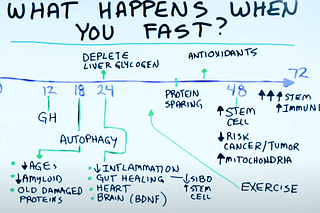 WHAT HAPPENS WHEN
YOU FAST?
DEPLETE
LIVER GLYCOGEN
ANTIOXIDANTS
72
12
18
24
PROTEIN
SPARING
48
GH
AUTOPHAGY
↑ STEM
CELL
↓ RISK
CANCER/TUMOR
↑ MITOCHONDRIA
↑↑↑ STEM
↑ IMMUNE
↓ AGEs
↓ AMYLOID
OLD DAMAGED
PROTEINS
↓ INFLAMMATION
GUT HEALING
HEART
BRAIN (BDNF)
↓ SIBO
↑ STEM
CELL
EXERCISE